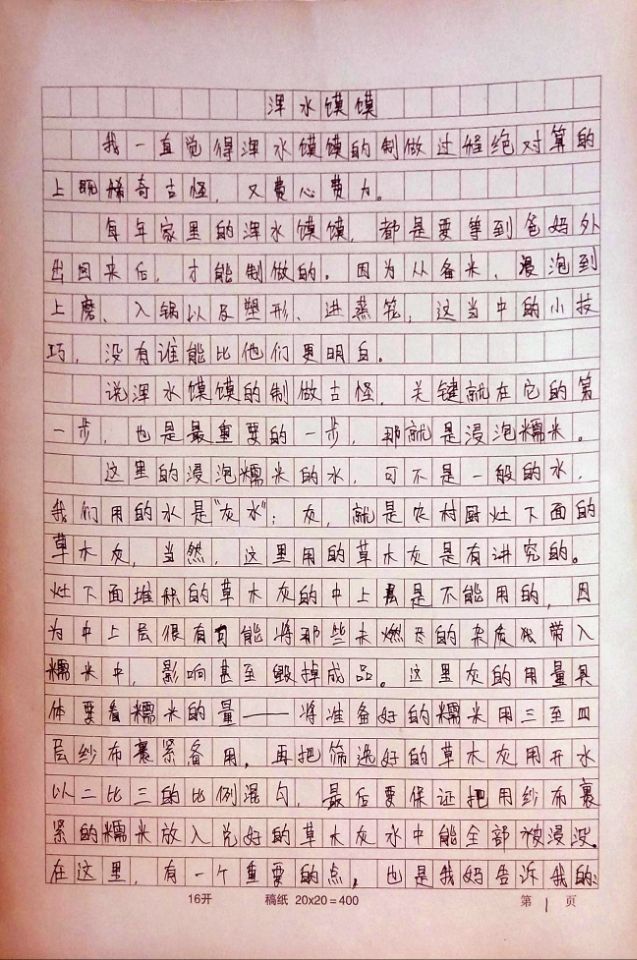 浑水馍馍
我一直觉得浑水馍馍的制做过程绝对算的
上既稀奇古怪，又费心费力。
每年家里的浑水馍馍，都是要等到爸妈外
出回来后，才能制做的。因为从备米、浸泡到
上磨、入锅以及塑形、进蒸笼，这当中的小技
巧，没有谁能比他们更明白。
说浑水馍馍的制做古怪，关键就在它的第
一步，也是最重要的一步，那就是浸泡糯米。
这里的浸泡糯米的水，可不是一般的水，
我们用的水是“灰水”；灰，就是农村厨灶下面的
草木灰，当然，这里用的草木灰是有讲究的。
灶下面堆积的草木灰的中上层是不能用的，因
为中上层很有可能将那些未燃尽的杂质带入
糯米中，影响甚至毁掉成品。这里灰的用量具
体要看糯米的量——将准备好的糯米用三至四
层纱布裹紧备用，再把筛选好的草木灰用开水
以二比三的比例混匀，最后要保证把用纱布裹
紧的糯米放入兑好的草木灰水中能全部被浸没。
在这里，有一个重要的点，也是我妈告诉我的：
16开 稿纸 20x20=400 第 1 页